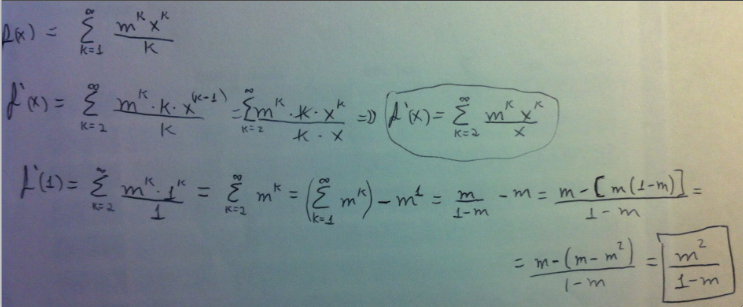 f(x) = ∞ Σ k=1 m^k x^k / k
f'(x) = ∞ Σ k=2 m^k · k · x^(k-1) / k = ∞ Σ k=2 m^k · k · x^k / k · x => f'(x) = ∞ Σ k=2 m^k x^k / x
f'(1) = ∞ Σ k=2 m^k · 1^k / 1 = ∞ Σ k=2 m^k = (∞ Σ k=1 m^k) - m^1 = m / 1-m - m = m - [m(1-m)] / 1-m =
= m - (m - m^2) / 1-m = m^2 / 1-m